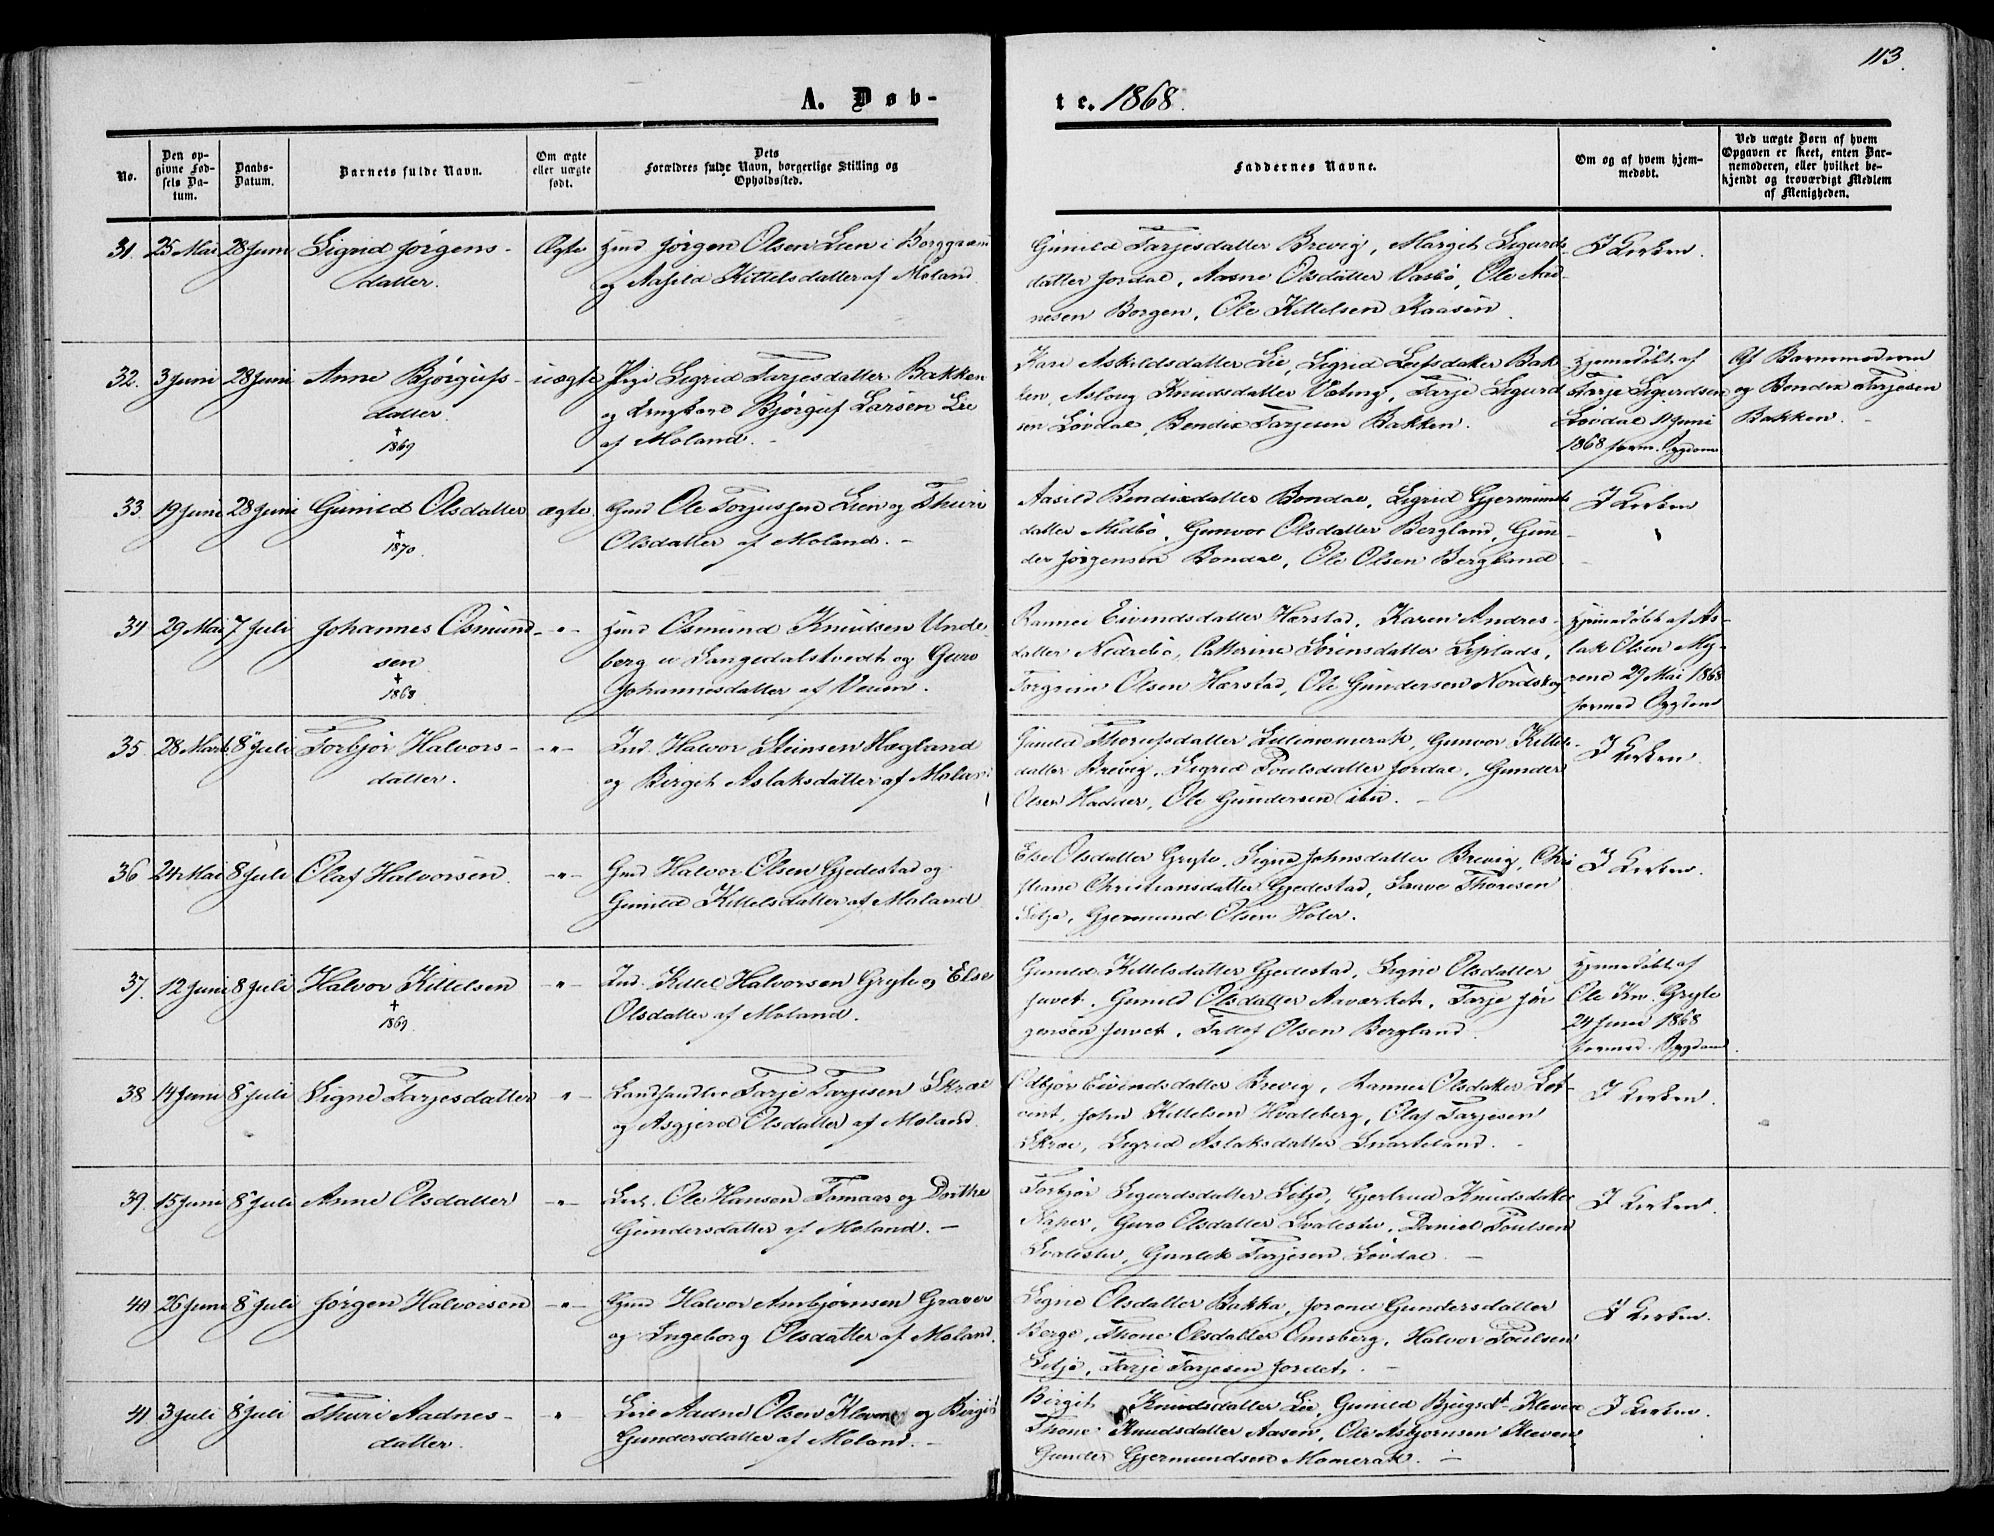 113.
A. Døb-
te. 1868.
No.
Den op-
givne Fød-
sels Da-
tum.
Daabs-
Datum.
Barnets fulde Navn.
Om ægte
eller uægte
født.
Dets
Forældres fulde Navn, borgerlige Stilling og
Opholdssted.
Faddernes Navne.
Om og af hvem hjem-
medøbt.
Ved uægte Børn af hvem
Opgaven er skeet, enten Bar-
nemoderen, eller hvilket be-
kjendt og troværdigt Medlem
af Menigheden.
31. 25 Mai 28 Juni Sigrid Jørgens-
datter.
Ægte
Hmd Jørgen Olsen Lien i Borggræn
og Aasild Kittelsdatter af Moland
Gunild Tarjesdatter Brevig, Margit Sigurds-
datter Jordal, Aasne Olsdatter Vasbø, Ole Aad-
nesen Borgen, Ole Kittelsen Kaasen.
I Kirken.
32. 3 Juni 28 Juni Anne Bjørgufs-
datter.
†
1869
uægte
Pige Sigrid Tarjesdatter Bakken
og Ungkarl Bjørguf Larsen Lie
af Moland. -
Kari Askildsdatter Lie, Sigrid Leifsdatter Bak-
ken, Aslaug Knudsdatter Veting, Tarje Sigurd
sen Løvdal, Bendix Tarjesen Bakken.
Hjemmedøbt af
Tarje Sigurdsen
Løvdal 11 Juni
1868 form. Sygdom
Af Barnemoderen
og Bendix Tarjesen
Bakken. -
33. 19 Juni 28 Juni Gunild Olsdatter
†
1870.
ægte.
Gmd Ole Torjussen Lien og Thuri
Olsdatter af Moland. -
Aasild Bendixdatter Bondal, Sigrid Gjermunds
datter Midbø, Gunvor Olsdatter Bergland, Gun-
der Jørgensen Bondal, Ole Olsen Bergland
I Kirken
34 29 Mai 7 Juli Johannes Osmund-
sen
†
1868
-"-
Hmd Osmund Knudsen Unde-
berg u Langedalstvedt og Guro
Johannesdatter af Veum.
Rannei Eivindsdatter Hærstad, Karen Andres-
datter Nedrebø, Catterine Sørensdatter
Torgrim Olsen Hærstad, Ole Gundersen Nordskog
Hjemmedøbt af As-
lak Olsen My-
rene 29 Mai 1868
formed. Sygdom
35. 28 Marts 8 Juli Torbjør Halvors-
datter.
-"-
Ind. Halvor Steinsen Hægland
og Birgit Aslaksdatter af Moland
Gunild Thorufsdatter Lillemomrak, Gunvor Kittels-
datter Brevig, Sigrid Poulsdatter Jordal, Gunder
Olsen Hadder, Ole Gundersen ibid. -
I Kirken.
36 24 Mai 8 Juli Olaf Halvorsen.
-"-
Gmd Halvor Olsen Gjedestad og
Gunild Kittelsdatter af Moland
Else Olsdatter Gryto, Signe Johnsdatter Brevig, Chri
stiane Christiansdatter Gjedestad, Saave Thoresen
Siljo, Gjermund Olsen Holer.
I Kirken.
37. 12 Juni 8 Juli Halvor Kittelsen
†
1869.
-"-
Ind. Kittel Halvorsen Gryto og Else
Olsdatter af Moland.
Gunild Kittelsdatter Gjedestad, Signe Olsdatter
Juvet, Gunild Olsdatter Aaværket, Tarje Jør
gensen Juvet, Tallef Olsen Bergland.
Hjemmedøbt af
Ole Kn. Gryto
24 Juni 1868
formed. Sygdom.
38 14 Juni 8 Juli Signe Tarjesdatter
"-
Landhandler Tarje Tarjesen Skræ
og Asgjerd Olsdatter af Moland.
Odbjør Eivindsdatter Brevig, Rannei Olsdatter
John Kittelsen Hvaleberg, Olaf Tarjesen
Skræ, Sigrid Aslaksdatter Snarteland. -
I Kirken.
39. 15 Juni 8 Juli Anne Olsdatter
-"-
Ole Hansen Tomaas og Dorthe
Gundersdatter af Moland. -
Torbjør Sigurdsdatter Siljo, Gjertrud Knudsdatter
Naper, Guro Olsdatter Svalestu, Daniel Poulsen
Svalestu, Gunlek Tarjesen Løvdal. -
I Kirken.
40 26 Juni 8 Juli Jørgen Halvorsen
-"-
Gmd Halvor Ambjørnsen Graver
og Ingeborg Olsdatter af Moland.
Signe Olsdatter Bakka, Jorond Gundersdatter
Berge, Thone Olsdatter Omsberg, Halvor Poulsen
Siljo, Tarje Tarjesen Jordet. -
I Kirken.
41 3 Juli 8 Juli Thuri Aadnes-
datter.
-"
Leie Aadne Olsen Kleven og Birgit
Gundersdatter af Moland. -
Birgit Knudsdatter Lie, Gunild Bjugsdt Kleven
Thone Knudsdatter Aasen, Ole Asbjørnsen Kleven
Gunder Gjermundsen Momrak. -
I Kirken.